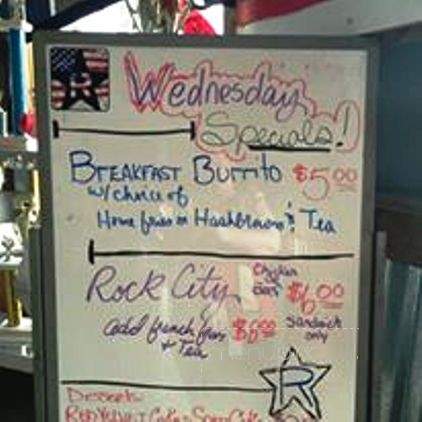 R
Wednesday
Specials!
BREAKFAST BURRITO $5.00
w/choice of
Home fries or Hashbrowns & Tea
ROCK CITY $6.00
add french fries $8.00 Sandwich only
& Tea
R
Desserts
Red Velvet Cake